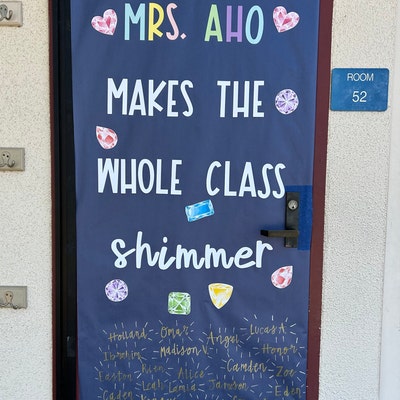 MRS. AHO
MAKES THE
WHOLE CLASS
shimmer
ROOM
52
Holland Omar Angel Lucas A
Ibrahim Madison V. Honor
Easton Kian Alice Camden Zoe
Caden Leah Lamia Jameson Eden